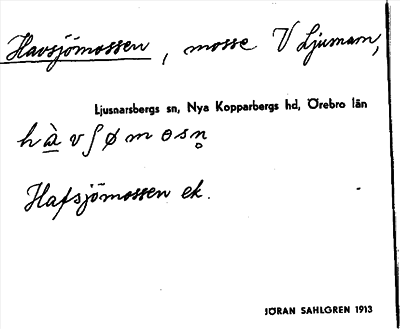 Havsjömossen, mosse V Ljusnarn,
Ljusnarsbergs sn, Nya Kopparbergs hd, Örebro län
hàvʃømosn̥
Hafsjömossen ek.
JÖRAN SAHLGREN 1913